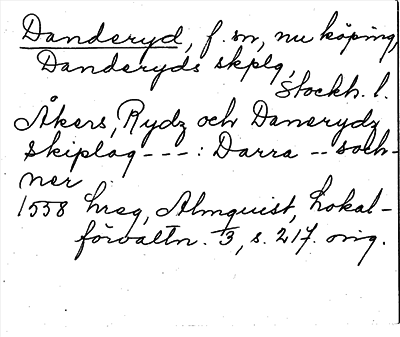 Danderyd, f. sn, nu köping,
Danderyds skplg,
Stockh. l.
Åkers, Rydz och Danerydz
skiplag --- : Darra -- soch-
ner
1558 hreg, Almquist, Lokal-
förvaltn. 3, s. 217. orig.